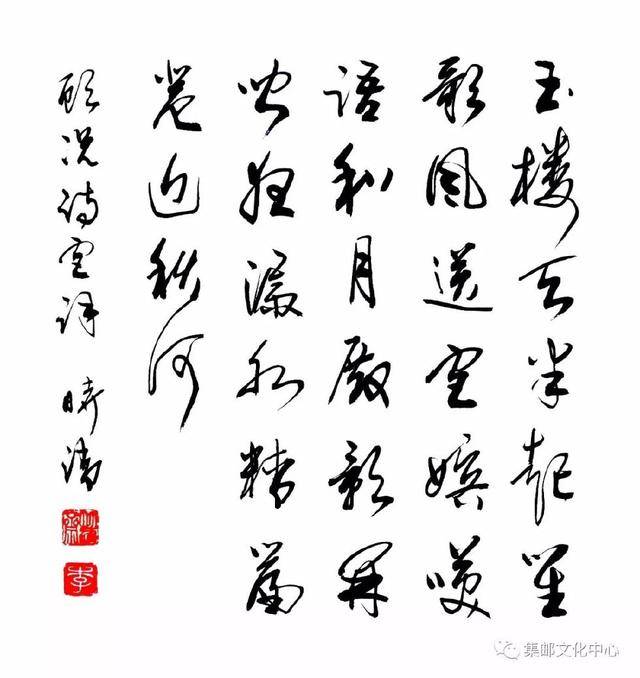 玉楼天半起笙
歌风送宫嫔笑
语和月殿影开
闻夜漏水精帘
卷近秋河
顾况诗宫词
李
集邮文化中心